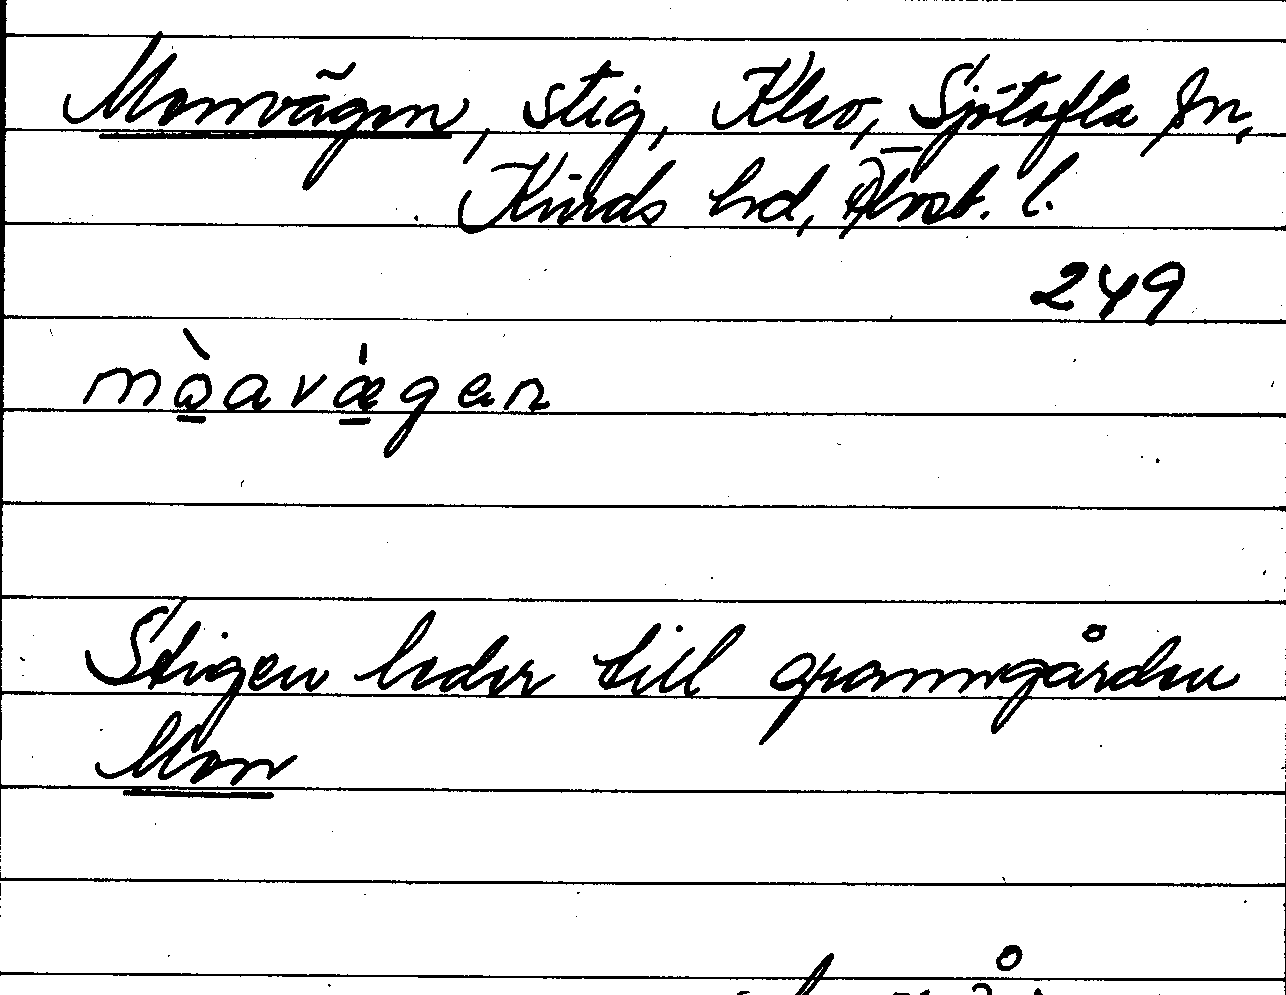 Monvägen, stig, Klev, Sjötofta sn,
Kinds hd, Älvsb. l.
249
mo̲̊̀avæ̲̍gen
Stigen leder till granngården
Mon